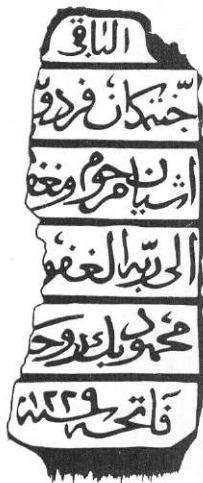 الباقی
جنتمکان فردو
اشیان مرحوم ومغفو
الی ربه الغفو
محمود بك روح
فاتحه سنه ١٢٢٩